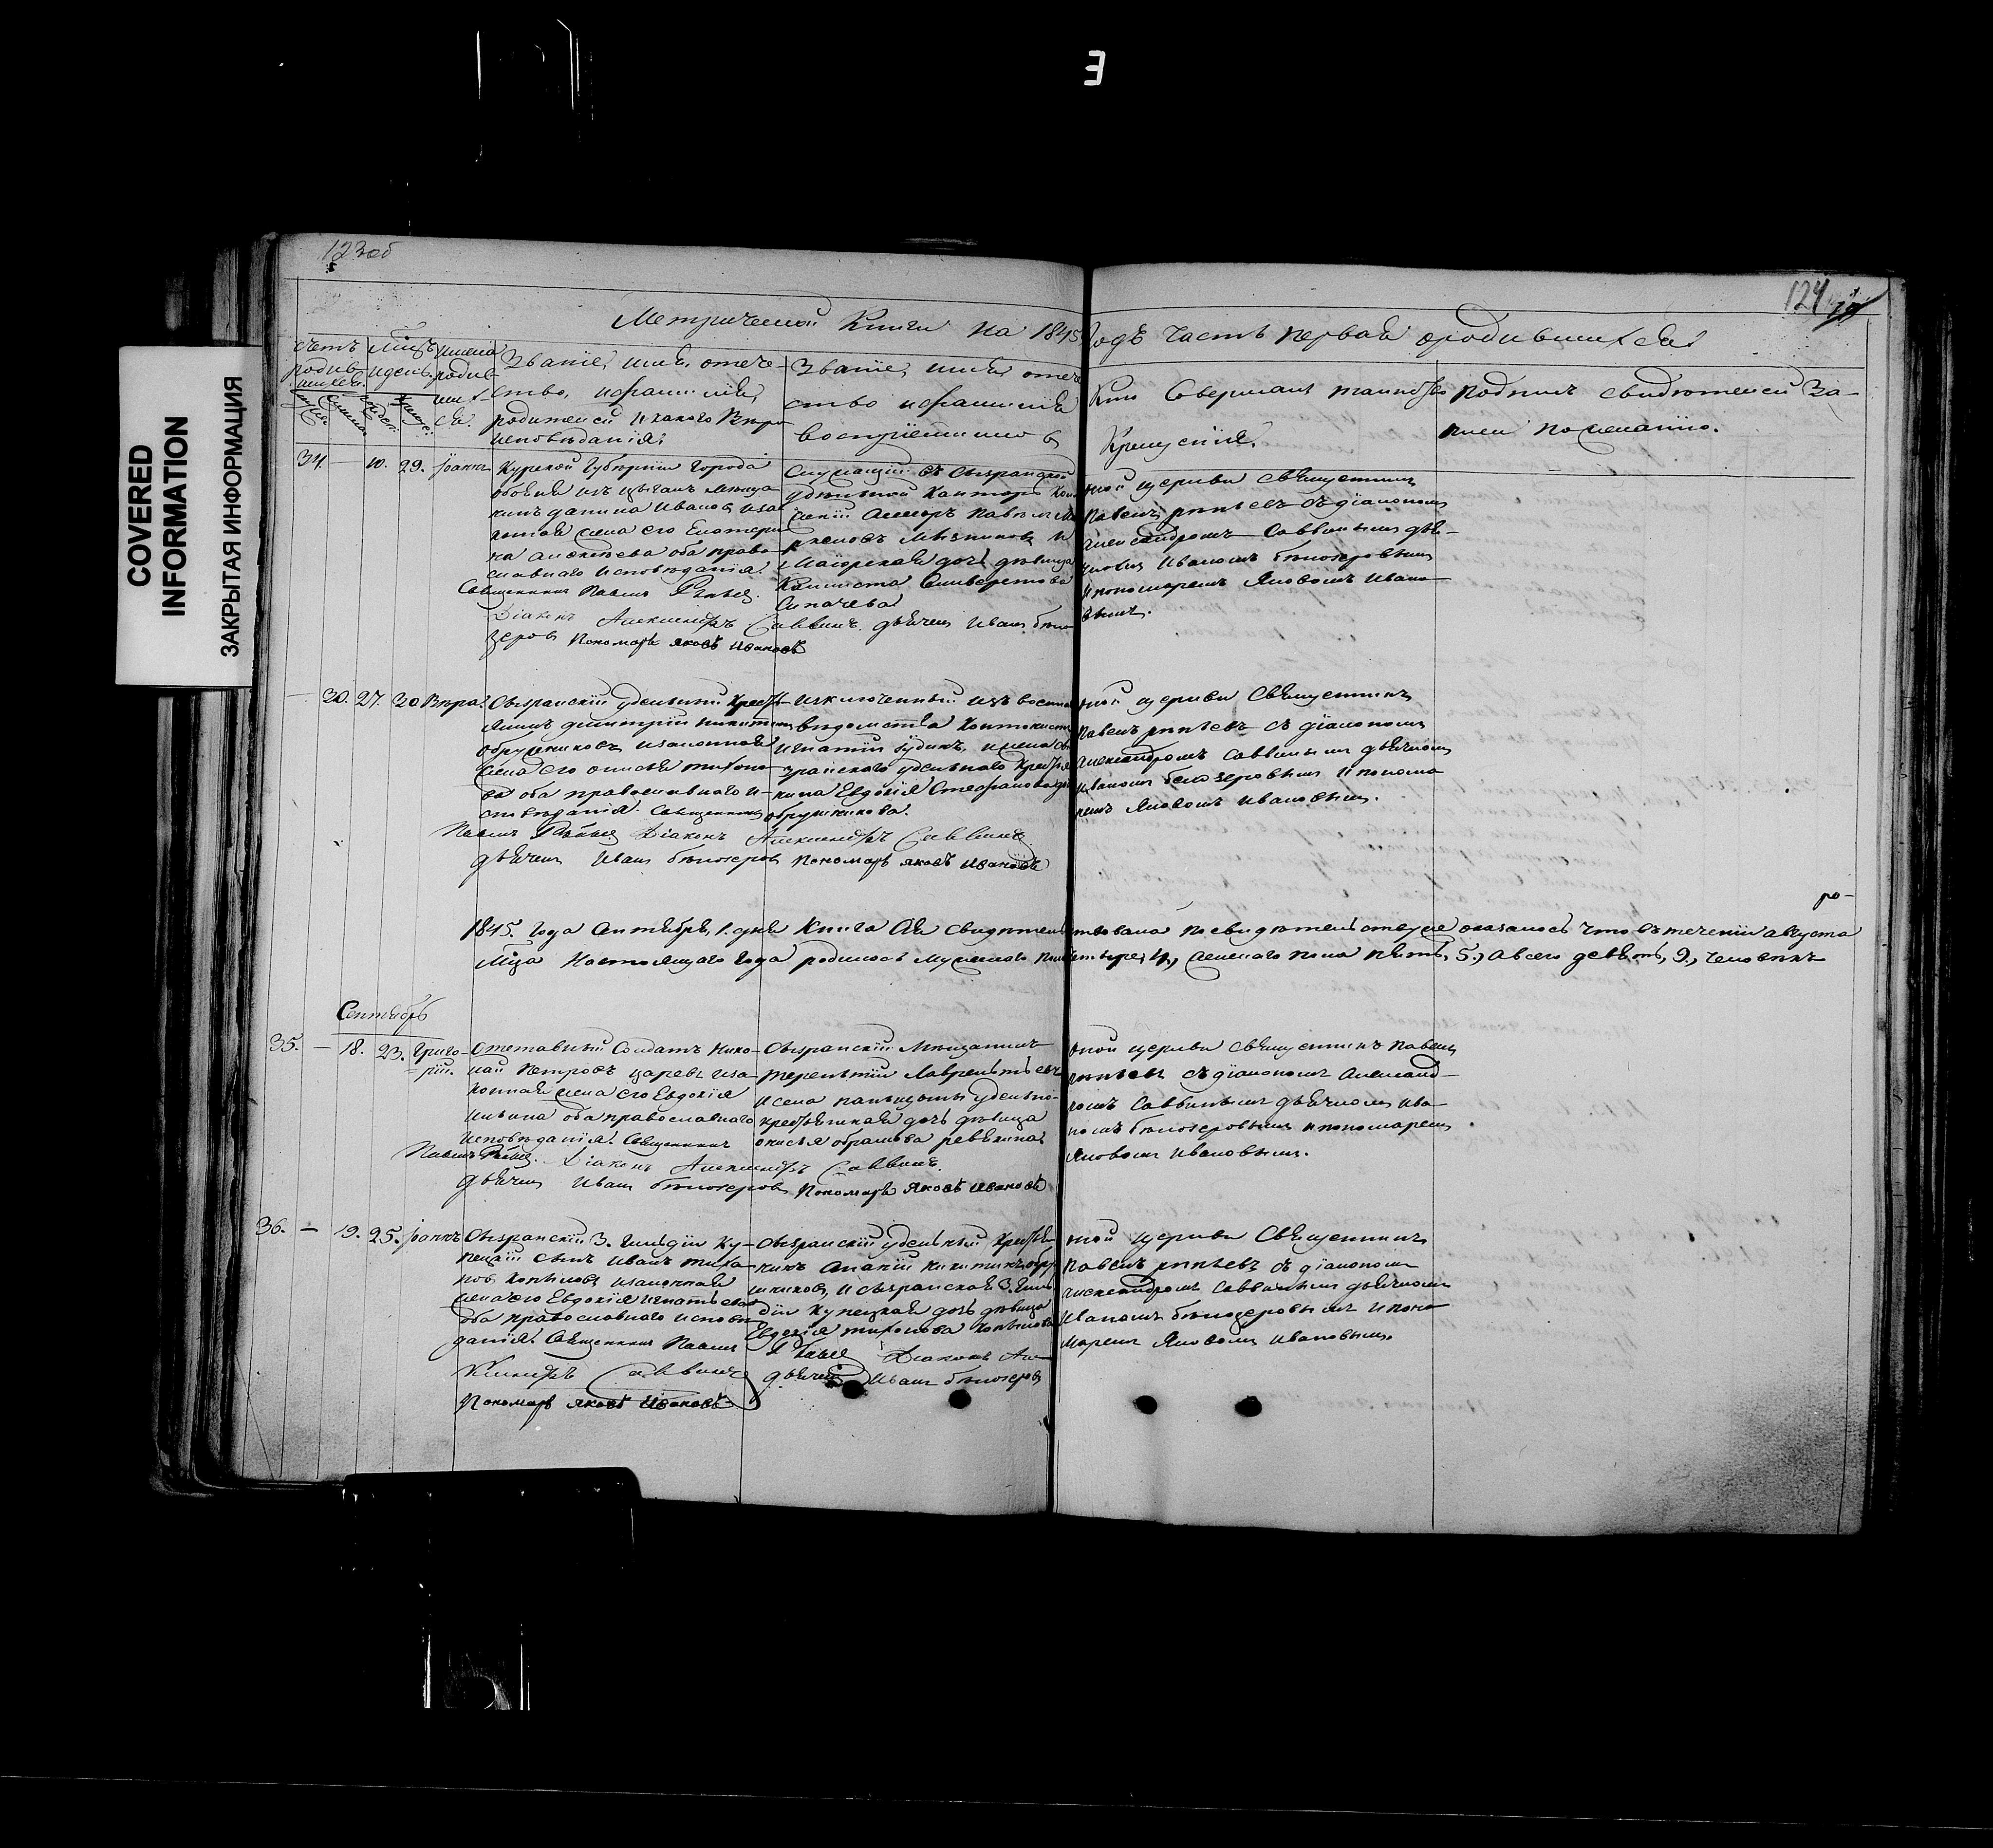 E
COVERED
INFORMATION
ЗАКРЫТАЯ ИНФОРМАЦИЯ
123об
124
Метрической Книги на 1845 Годъ часть первая ородившихся
Званіе, имя, отече-
ство, ифамилія,
родителей и какого Вѣро
исповѣданія,
Званіе, имя, отече
ство ифамилія
воспріемниковъ
Кто Совершалъ таинство
Крещенія.
подпись свидѣтелей За-
писи пожеланію.
34. — 10. 29. Іоаннъ
Курской Губерніи Города
Обояни изъ цыганъ мѣща
нинъ данила Ивановъ иза
конная жена его Екатери
на алексѣева оба право-
славнаго исповѣданія.
Священникъ Павелъ
Діаконъ Александръ Саввинъ. дьячекъ Иванъ бѣло
зеровъ Пономарь Яковъ Ивановъ
Служащій въ Сызранской
удѣльной Конторѣ
Маіорская дочь дѣвица
ной церкви Священникъ
Павелъ съ діакономъ
александромъ Саввинымъ дья-
чкомъ Иваномъ бѣлозеровымъ
ипономаремъ Яковомъ Ивано
вымъ.
— 30. 27. 30 Вѣра.
Сызранскій удѣльный Крестья
нинъ димитрій никитинъ
обрушниковъ изаконная
жена его анисья тихоно
ва оба православнаго и-
сповѣданія. Священникъ
Павелъ Діаконъ Александръ Саввинъ
дьячекъ Иванъ бѣлозеровъ Пономарь Яковъ Ивановъ
Изключенный изъ военна
вѣдомства Кантонистъ
игнатій Юдинъ, ижена сы
зранскаго удѣльнаго Крестья
нина Евдокія Стефанова
обрушникова.
ной церкви Священникъ
Павелъ съ діакономъ
Александромъ Саввинымъ дьячкомъ
Иваномъ бѣлозеровымъ ипонома
ремъ Яковомъ Ивановымъ.
ро-
1845. Года Сентября, 1. дня Книга Сія свидѣтельствована посвидѣтельствуе оказалось чтовътеченіи августа
Мца настоящаго Года родилось мужеска пола четыре, 4., женскаго пола пять, 5., авсего девять, 9., человѣкъ
Сентябрь
35. — 18. 23. Григо-
рій.
Отставный Солдатъ Нико-
лай Петровъ царевъ иза-
конная жена его Евдокія
ильина оба православнаго
исповѣданія. Священникъ
Павелъ Діаконъ Александръ Саввинъ.
дьячекъ Иванъ бѣлозеровъ Пономарь Яковъ Ивановъ
Сызранскій Мѣщанинъ
терентій Лаврентьевъ
исела паньшины удѣльно-
крестьянская дочь дѣвица
анисья абрамова ревякина
ной церкви священникъ Павелъ
съдіакономъ Александ-
ромъ Саввинымъ дьячкомъ Ива-
номъ бѣлозеровымъ ипономаремъ
Яковомъ Ивановымъ.
36. — 19. 25. Іоаннъ
Сызранскій 3. Гильдіи Ку-
пецкій сынъ Иванъ тихо
новъ Копыловъ изаконная
жена его Евдокія Игнатьева
оба православнаго исповѣ
данія. Священникъ Павелъ
Діаконъ Але
ксандръ Саввинъ дьячекъ Иванъ бѣлозеровъ
Пономарь Яковъ Ивановъ
Сызранскій удѣльный Крестья
нинъ Ананій никитинъ обру
шниковъ, и сызранская 3. Гиль
діи Купецкая дочь дѣвица
Евдокія тихонова Копылова
ной церкви Священникъ
Павелъ съ діакономъ
александромъ Саввинымъ дьячкомъ
Иваномъ бѣлозеровымъ ипоно
маремъ Яковомъ Ивановымъ.